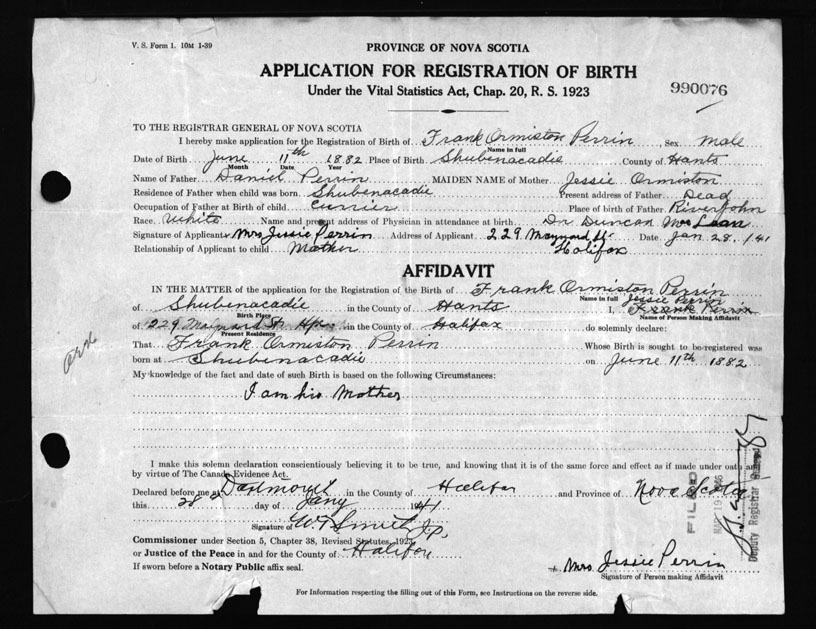 V. S. Form 1. 10M 1-39
PROVINCE OF NOVA SCOTIA
APPLICATION FOR REGISTRATION OF BIRTH
Under the Vital Statistics Act, Chap. 20, R. S. 1923
990076
TO THE REGISTRAR GENERAL OF NOVA SCOTIA
I hereby make application for the Registration of Birth of Frank Ormiston Perrin Sex male
Name in full
Date of Birth June 11th 1882 Place of Birth Shubenacadie County of Hants
Month Date Year
Name of Father Daniel Perrin MAIDEN NAME of Mother Jessie Ormiston
Residence of Father when child was born Shubenacadie Present address of Father Dead
Occupation of Father at Birth of child Currier Place of birth of Father River John
Race White Name and present address of Physician in attendance at birth Dr Duncan
Signature of Applicant Mrs Jessie Perrin Address of Applicant 229 Maynard St Date Jan 28. /41
Relationship of Applicant to child Mother Halifax
AFFIDAVIT
IN THE MATTER of the application for the Registration of the Birth of Frank Ormiston Perrin
Name in full Jessie Perrin
of Shubenacadie in the County of Hants I, Frank Perrin
Birth Place Name of Person Making Affidavit
of 229 Maynard St Hfx in the County of Halifax do solemnly declare:
Present Residence
That Frank Ormiston Perrin Whose Birth is sought to be registered was
born at Shubenacadie on June 11th 1882
My knowledge of the fact and date of such Birth is based on the following Circumstances:
I am his Mother
I make this solemn declaration conscientiously believing it to be true, and knowing that it is of the same force and effect as if made under oath and
by virtue of The Canada Evidence Act.
Declared before me at Dartmouth in the County of Halifax and Province of Nova Scotia
this 28 day of Jany 1941
Signature of W. T. Smith J.P.
Commissioner under Section 5, Chapter 38, Revised Statutes, 1923
or Justice of the Peace in and for the County of Halifax
If sworn before a Notary Public affix seal.
+ Mrs Jessie Perrin
Signature of Person making Affidavit
For Information respecting the filling out of this Form, see Instructions on the reverse side.
FILED
Deputy Registrar